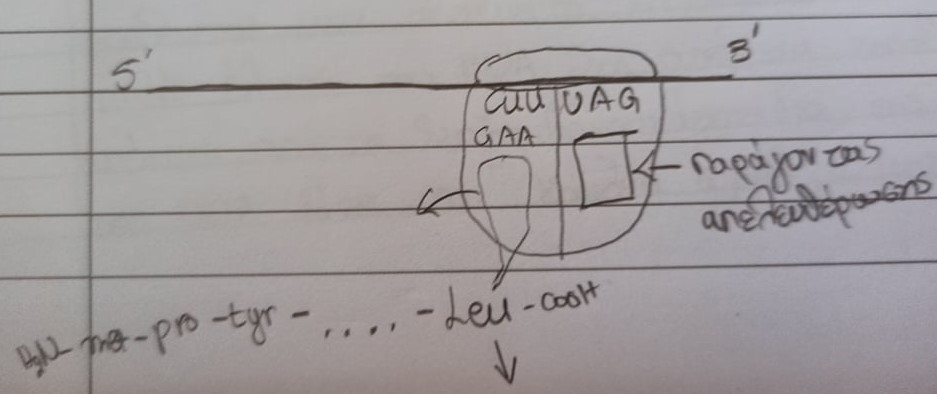 5' 3'
CUU UAG
GAA
παράγοντας
απελευθέρωσης
H₂N-met-pro-tyr-....-Leu-COOH